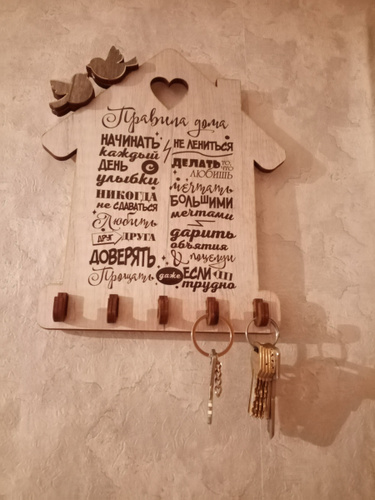 Правила дома
НАЧИНАТЬ
каждый
ДЕНЬ С
улыбки
НИКОГДА
не СДАВАТЬСЯ
Любить
друг ДРУГА
ДОВЕРЯТЬ
Прощать даже ЕСЛИ
трудно
НЕ ЛЕНИТЬСЯ
ДЕЛАТЬ ТО, ЧТО
ЛЮБИШЬ
мечтать
БОЛЬШИМИ
мечтами
дарить
объятия
& поцелуи